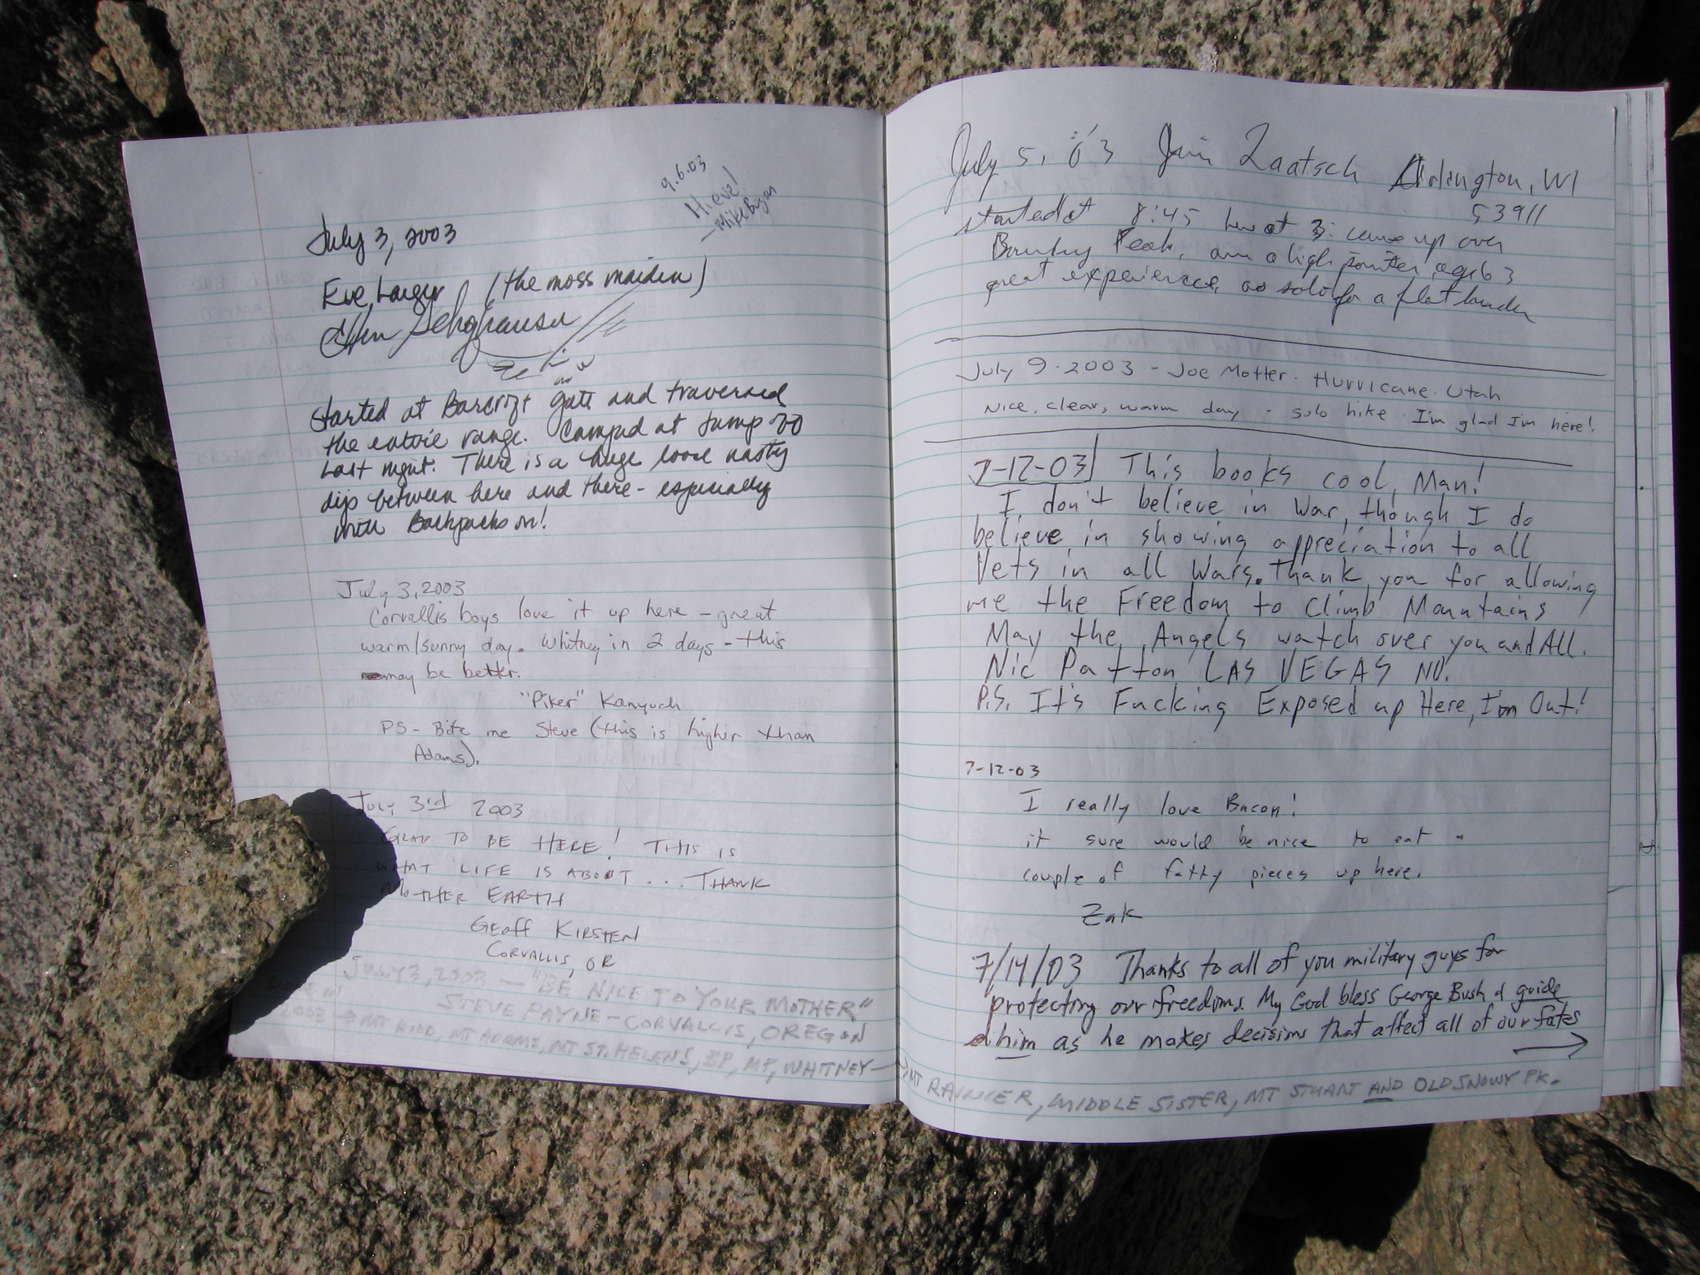 9.6.03
Hi eve!
July 3, 2003
Eve (the moss maiden)
Started at Barcroft gate and traversed
the entire range. Camped at Jump
Last night. There is a huge loose nasty
dip between here and there - especially
with Backpacks on!
July 3, 2003
Corvallis boys love it up here - great
warm/sunny day. Whitney in 2 days - this
may be better.
"Piker" Kanyuch
PS - Bite me Steve (this is higher than
Adams).
July 3rd 2003
GLAD TO BE HERE! THIS IS
WHAT LIFE IS ABOUT... THANK
MOTHER EARTH
GEOFF KIRSTEN
CORVALLIS, OR
JULY 3, 2003 - "BE NICE TO YOUR MOTHER"
STEVE PAYNE - CORVALLIS, OREGON
2003 → MT HOOD, MT ADAMS, MT ST. HELENS, BP, MP, WHITNEY →
July 5, '03 Jim Zaatsch Arlington, WI
53911
started at 8:45 here at 3: came up over
Boundary Peak, am a high pointer, age 63
great experience, as solo for a flatlander
July 9. 2003 - Joe Motter. Hurricane. Utah
Nice, clear, warm day. solo hike. I'm glad I'm here!
7-12-03 This books cool, Man!
I don't believe in War, though I do
believe in showing appreciation to all
Vets in all Wars. Thank you for allowing
me the Freedom to Climb Mountains
May the Angels watch over you and All.
Nic Patton LAS VEGAS NV.
P.S. It's Fucking Exposed up Here, I'm Out!
7-12-03
I really love Bacon!
it sure would be nice to eat a
couple of fatty pieces up here.
Zak
7/14/03 Thanks to all of you military guys for
protecting our freedoms. My God bless George Bush & guide
him as he makes decisions that affect all of our fates
→
MT RAINIER, MIDDLE SISTER, MT STUART AND OLD SNOWY PK.